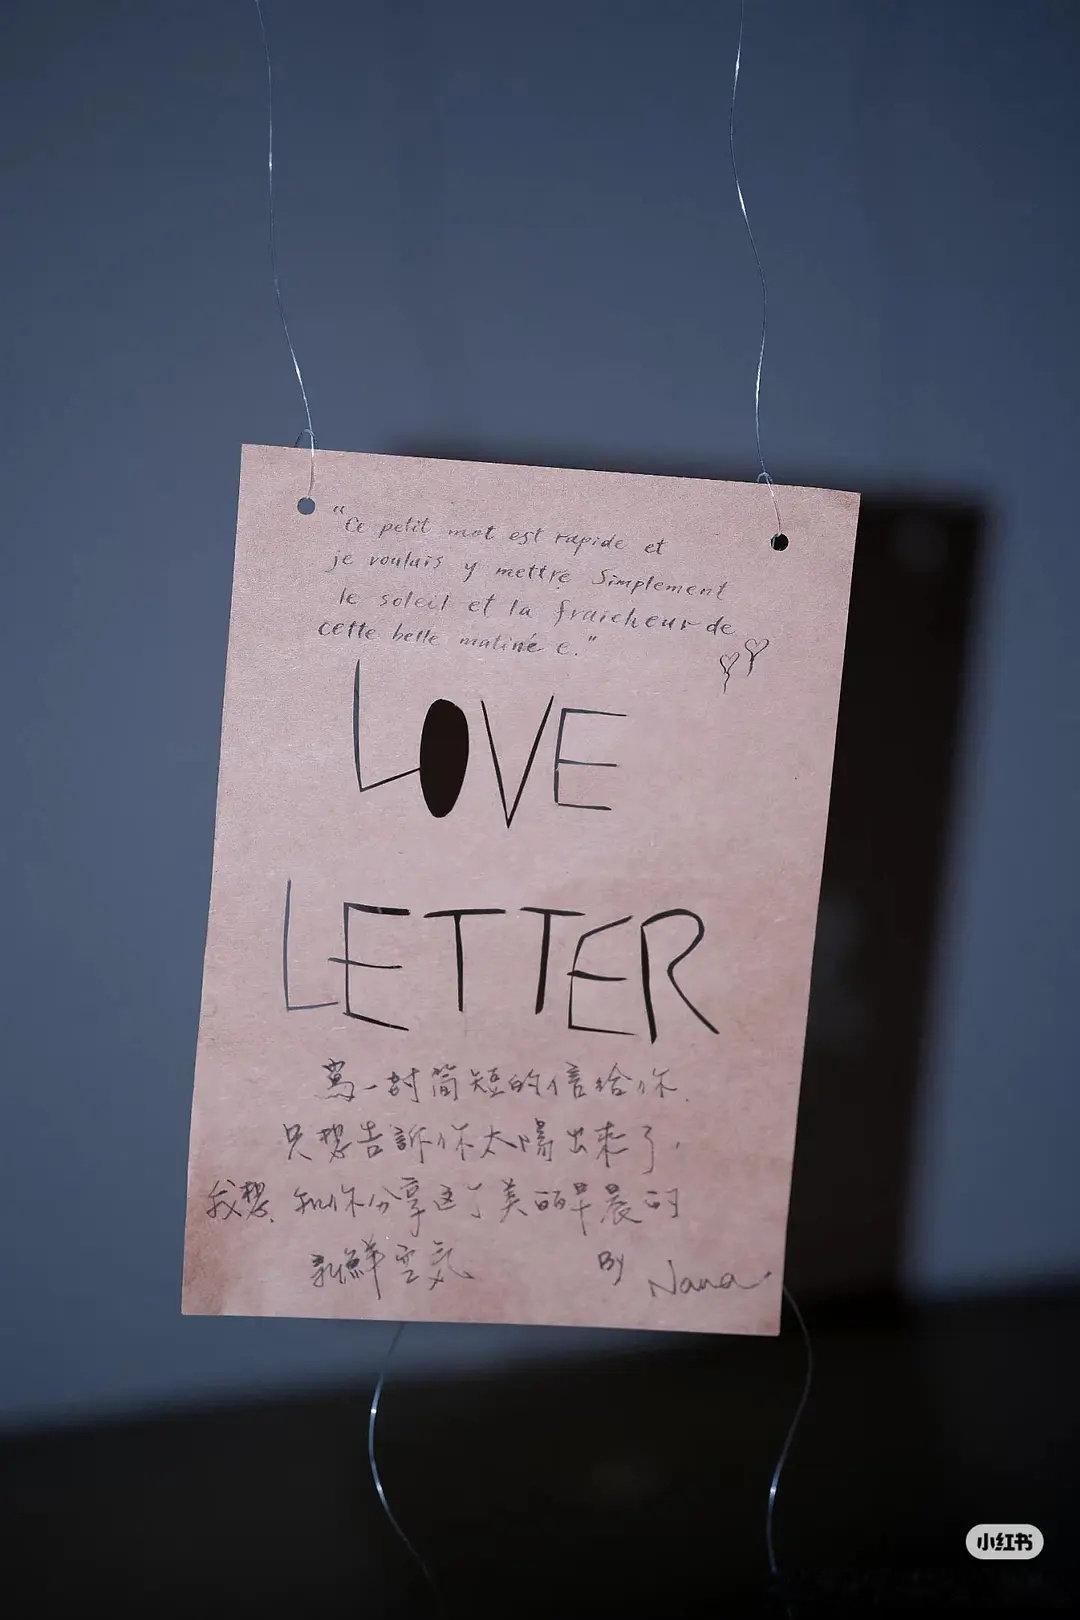 "Ce petit mot est rapide et
je voulais y mettre Simplement
le soleil et la fraicheur de
cette belle matiné e."
LOVE
LETTER
寫一封简短的信给你.
只想告訴你太陽出来了.
我想.和你分享这个美丽早晨的
新鮮空氣
By Nana
小红书